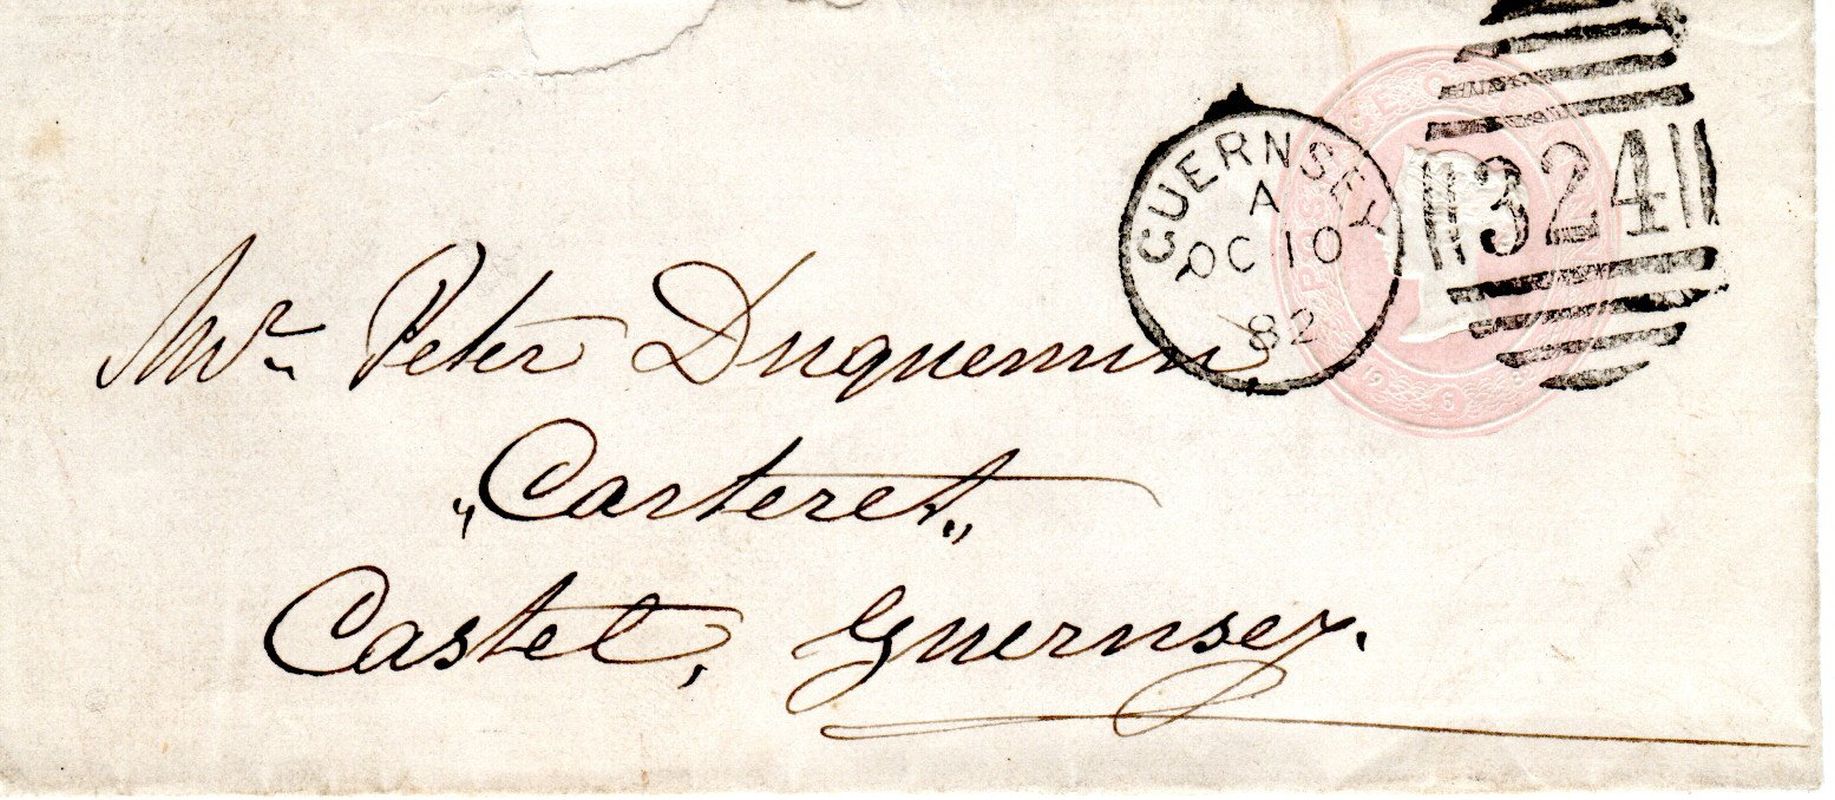 GUERNSEY
A
OC 10
82
324
Mr. Peter Duquemin,
„Carteret„
Castel, Guernsey.